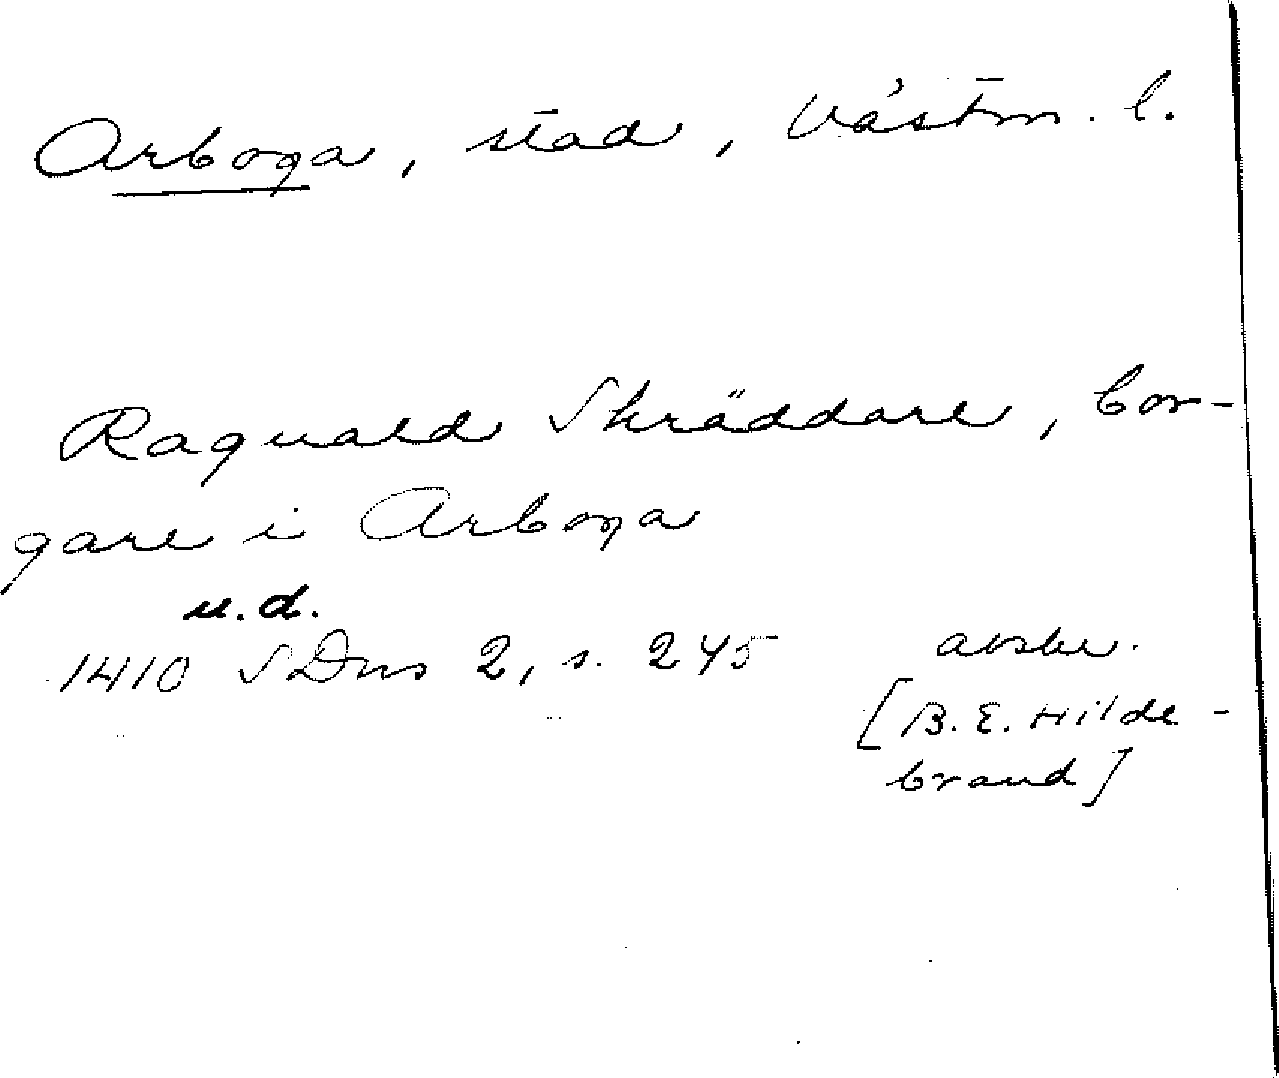 Arboga, stad, Västm. l.
Raguald Skräddare, bor-
gare i Arboga
u.d.
1410 SDns 2, s. 245 avskr.
[B. E. Hilde-
brand]